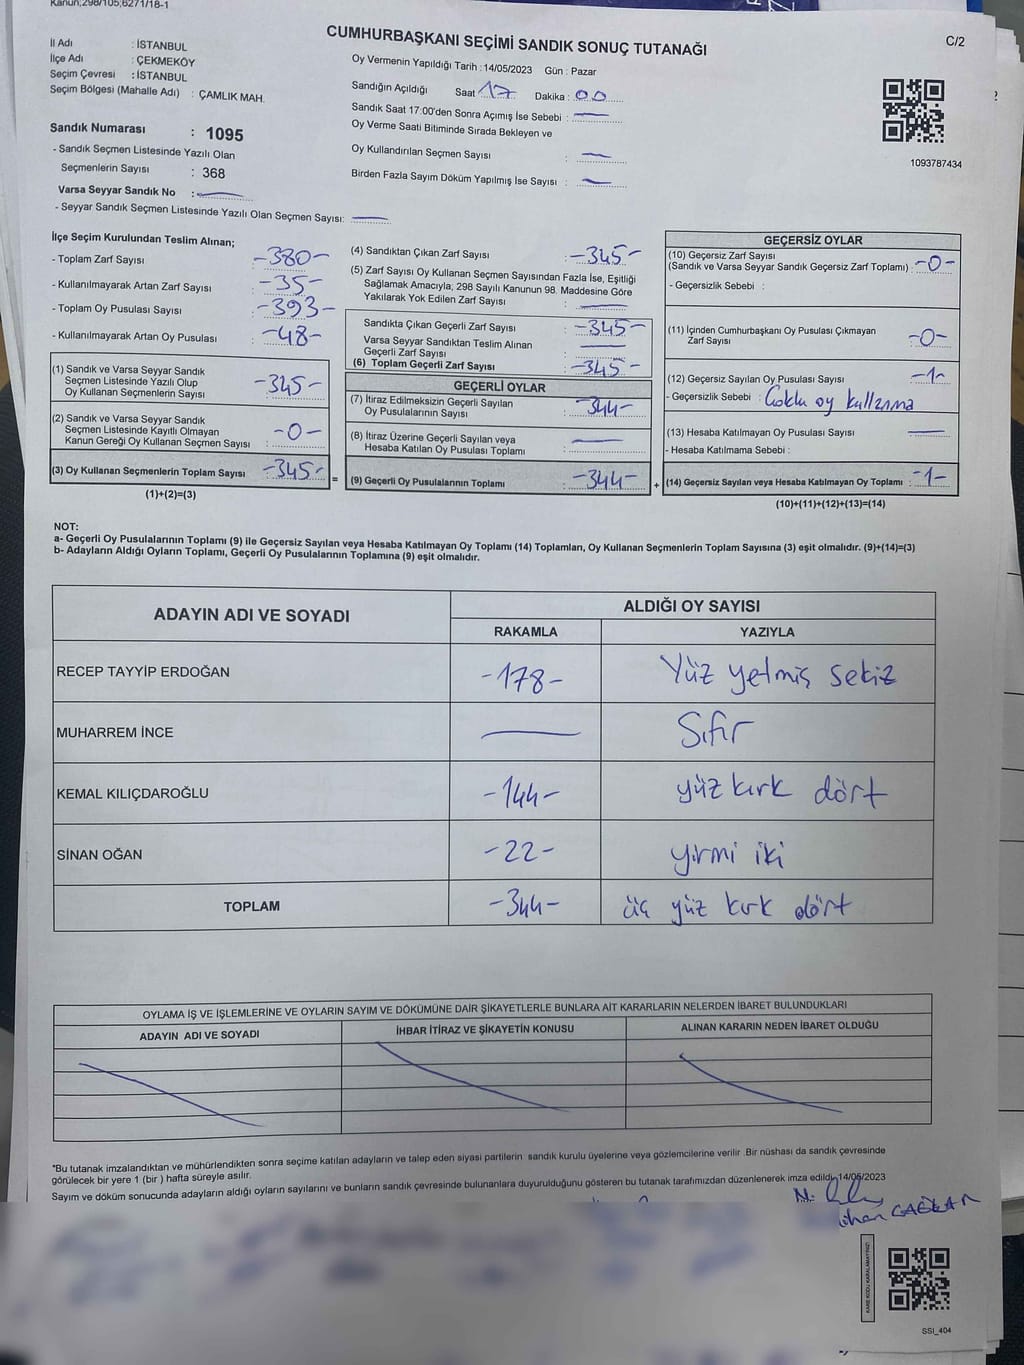 Kanun;298/105,6271/18-1
CUMHURBAŞKANI SEÇİMİ SANDIK SONUÇ TUTANAĞI
C/2
İl Adı : İSTANBUL
İlçe Adı : ÇEKMEKÖY
Seçim Çevresi : İSTANBUL
Seçim Bölgesi (Mahalle Adı) : ÇAMLIK MAH.
Sandık Numarası : 1095
- Sandık Seçmen Listesinde Yazılı Olan
Seçmenlerin Sayısı : 368
Varsa Seyyar Sandık No :
- Seyyar Sandık Seçmen Listesinde Yazılı Olan Seçmen Sayısı:
Oy Vermenin Yapıldığı Tarih : 14/05/2023 Gün : Pazar
Sandığın Açıldığı Saat 17 Dakika : 00
Sandık Saat 17:00'den Sonra Açımış İse Sebebi :
Oy Verme Saati Bitiminde Sırada Bekleyen ve
Oy Kullandırılan Seçmen Sayısı :
Birden Fazla Sayım Döküm Yapılmış İse Sayısı :
1093787434
İlçe Seçim Kurulundan Teslim Alınan;
- Toplam Zarf Sayısı : -380-
- Kullanılmayarak Artan Zarf Sayısı : -35-
- Toplam Oy Pusulası Sayısı : -393-
- Kullanılmayarak Artan Oy Pusulası : -48-
(1) Sandık ve Varsa Seyyar Sandık
Seçmen Listesinde Yazılı Olup
Oy Kullanan Seçmenlerin Sayısı : -345-
(2) Sandık ve Varsa Seyyar Sandık
Seçmen Listesinde Kayıtlı Olmayan
Kanun Gereği Oy Kullanan Seçmen Sayısı : -0-
(3) Oy Kullanan Seçmenlerin Toplam Sayısı : -345-
(1)+(2)=(3)
(4) Sandıktan Çıkan Zarf Sayısı : -345-
(5) Zarf Sayısı Oy Kullanan Seçmen Sayısından Fazla İse, Eşitliği
Sağlamak Amacıyla; 298 Sayılı Kanunun 98. Maddesine Göre
Yakılarak Yok Edilen Zarf Sayısı :
Sandıkta Çıkan Geçerli Zarf Sayısı : -345-
Varsa Seyyar Sandıktan Teslim Alınan
Geçerli Zarf Sayısı :
(6) Toplam Geçerli Zarf Sayısı : -345-
GEÇERLİ OYLAR
(7) İtiraz Edilmeksizin Geçerli Sayılan
Oy Pusulalarının Sayısı : -344-
(8) İtiraz Üzerine Geçerli Sayılan veya
Hesaba Katılan Oy Pusulası Toplamı :
= (9) Geçerli Oy Pusulalarının Toplamı : -344- +
GEÇERSİZ OYLAR
(10) Geçersiz Zarf Sayısı
(Sandık ve Varsa Seyyar Sandık Geçersiz Zarf Toplamı) : -0-
- Geçersizlik Sebebi :
(11) İçinden Cumhurbaşkanı Oy Pusulası Çıkmayan
Zarf Sayısı : -0-
(12) Geçersiz Sayılan Oy Pusulası Sayısı : -1-
- Geçersizlik Sebebi : Çoklu oy kullanma
(13) Hesaba Katılmayan Oy Pusulası Sayısı :
- Hesaba Katılmama Sebebi :
(14) Geçersiz Sayılan veya Hesaba Katılmayan Oy Toplamı : -1-
(10)+(11)+(12)+(13)=(14)
NOT:
a- Geçerli Oy Pusulalarının Toplamı (9) ile Geçersiz Sayılan veya Hesaba Katılmayan Oy Toplamı (14) Toplamları, Oy Kullanan Seçmenlerin Toplam Sayısına (3) eşit olmalıdır. (9)+(14)=(3)
b- Adayların Aldığı Oyların Toplamı, Geçerli Oy Pusulalarının Toplamına (9) eşit olmalıdır.
ADAYIN ADI VE SOYADI ALDIĞI OY SAYISI
RAKAMLA YAZIYLA
RECEP TAYYİP ERDOĞAN -178- Yüz yetmiş sekiz
MUHARREM İNCE Sıfır
KEMAL KILIÇDAROĞLU -144- yüz kırk dört
SİNAN OĞAN -22- yirmi iki
TOPLAM -344- üç yüz kırk dört
OYLAMA İŞ VE İŞLEMLERİNE VE OYLARIN SAYIM VE DÖKÜMÜNE DAİR ŞİKAYETLERLE BUNLARA AİT KARARLARIN NELERDEN İBARET BULUNDUKLARI
ADAYIN ADI VE SOYADI İHBAR İTİRAZ VE ŞİKAYETİN KONUSU ALINAN KARARIN NEDEN İBARET OLDUĞU
*Bu tutanak imzalandıktan ve mühürlendikten sonra seçime katılan adayların ve talep eden siyasi partilerin sandık kurulu üyelerine veya gözlemcilerine verilir .Bir nüshası da sandık çevresinde
görülecek bir yere 1 (bir ) hafta süreyle asılır.
Sayım ve döküm sonucunda adayların aldığı oyların sayılarını ve bunların sandık çevresinde bulunanlara duyurulduğunu gösteren bu tutanak tarafımızdan düzenlenerek imza edildi. 14/05/2023
KARE KODU KARALAMAYINIZ!
SSI_404